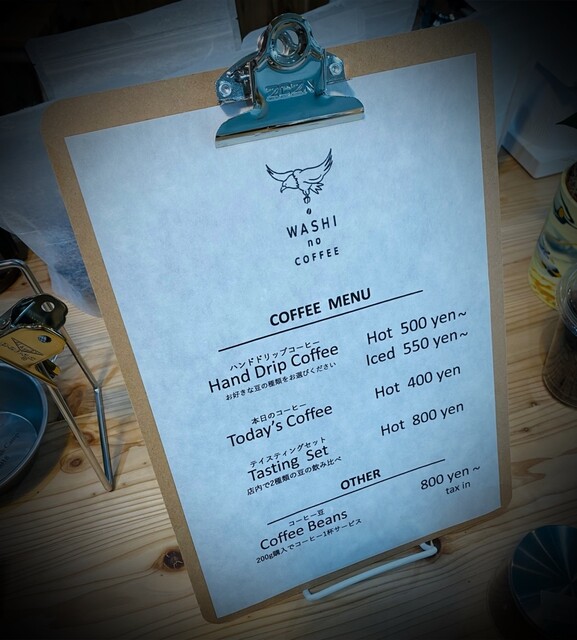 WASHI
no
COFFEE
COFFEE MENU
ハンドドリップコーヒー
Hand Drip Coffee
お好きな豆の種類をお選びください
Hot 500 yen~
Iced 550 yen~
本日のコーヒー
Today's Coffee
Hot 400 yen
テイスティングセット
Tasting Set
店内で2種類の豆の飲み比べ
Hot 800 yen
OTHER
コーヒー豆
Coffee Beans
200g購入でコーヒー1杯サービス
800 yen ~
tax in